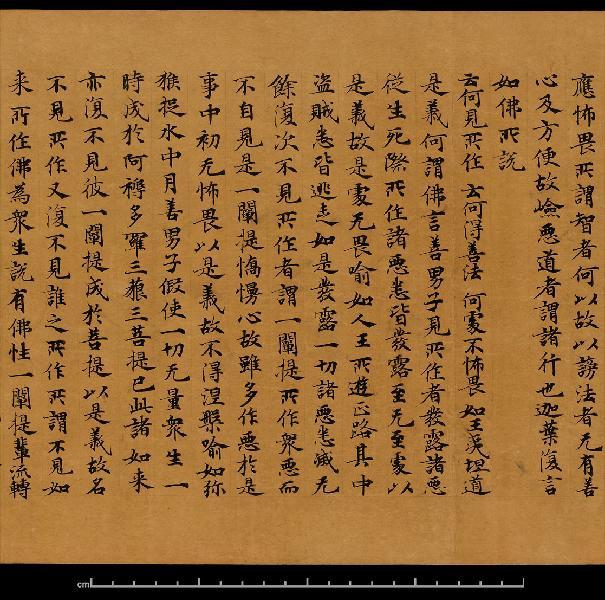 應怖畏所謂智者何以故以謗法者无有善
心及方便故嶮惡道者謂諸行也迦葉復言
如佛所說
云何見所作 云何得善法 何處不怖畏 如王夷坦道
是義何謂佛言善男子見所作者發露諸惡
從生死際所作諸惡悉皆發露至无至處以
是義故是處无畏喻如人王所遊正路其中
盜賊悉皆逃走如是發露一切諸惡悉滅无
餘復次不見所作者謂一闡提所作衆惡而
不自見是一闡提憍慢心故雖多作惡於是
事中初无怖畏以是義故不得涅槃喻如獼
猴捉水中月善男子假使一切无量衆生一
時成於阿耨多羅三藐三菩提已此諸如来
亦復不見彼一闡提成於菩提以是義故名
不見所作又復不見誰之所作所謂不見如
来所作佛為衆生說有佛性一闡提輩流轉
cm